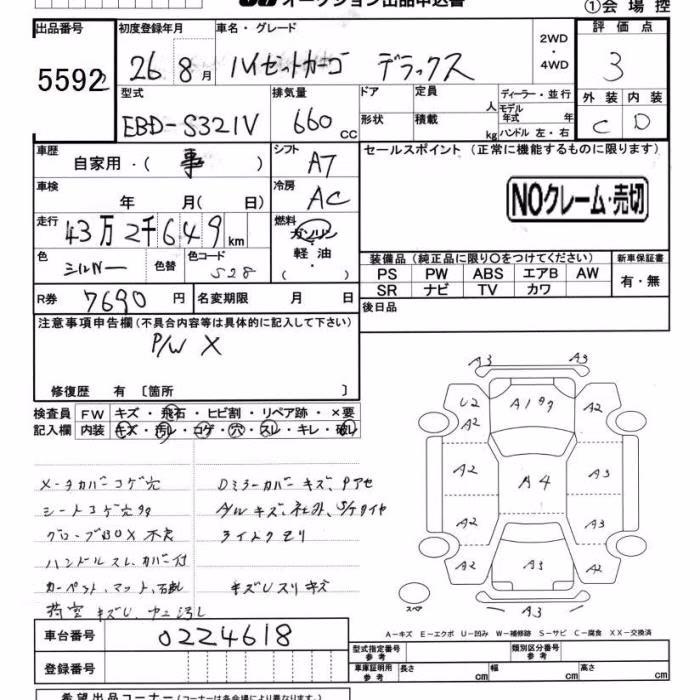 オークション出品申込書
①会場控
出品番号 初度登録年月 車名・グレード 2WD・4WD 評価点
5592 26年8月 ハイゼットカーゴ デラックス 3
型式 排気量 ドア 定員 人 ディーラー・並行 外装 内装
EBD-S321V 660cc 形状 積載 kg モデル年式 年 ハンドル 左・右 C D
車歴 自家用・( 事 ) シフト AT セールスポイント (正常に機能するものに限ります)
車検 年 月( 日) 冷房 AC NOクレーム・売切
走行 43万2千649km 燃料 ガソリン
軽油
( )
色 シルバー 色替 色コード S28
装備品 (純正品に限り○をつけてください) 新車保証書
PS PW ABS エアB AW 有・無
SR ナビ TV カワ
R券 7690円 名変期限 月 日 後日品
注意事項申告欄 (不具合内容等は具体的に記入して下さい)
P/W X
修復歴 有 〔箇所 〕
検査員 FW キズ・飛石・ヒビ割・リペア跡・×要
記入欄 内装 キズ・汚レ・コゲ・穴・スレ・キレ・破レ
メータカバーコゲ穴 Dミラーカバーキズ、Pアセ
シートコゲ穴多 A/Wキズ、社外、S/Tタイヤ
グローブBOX不良 ライトクモリ
ハンドルスレ、カバー付
カーペット、マット、 キズUスリキズ
荷室キズU、 汚レ
A3 A3
U2 A199 A2
A2 A2
A2 A4 A3
A2 A2
A2 A3 A2
スペア A3
A-キズ E-エクボ U-凹み W-補修跡 S-サビ C-腐食 XX-交換済
車台番号 0224618
型式指定番号 参考 類別区分番号 参考
登録番号 車庫証明用 参考 長さ cm 幅 cm 高さ cm
希望出品コーナー (コーナーは各会場により異なります)